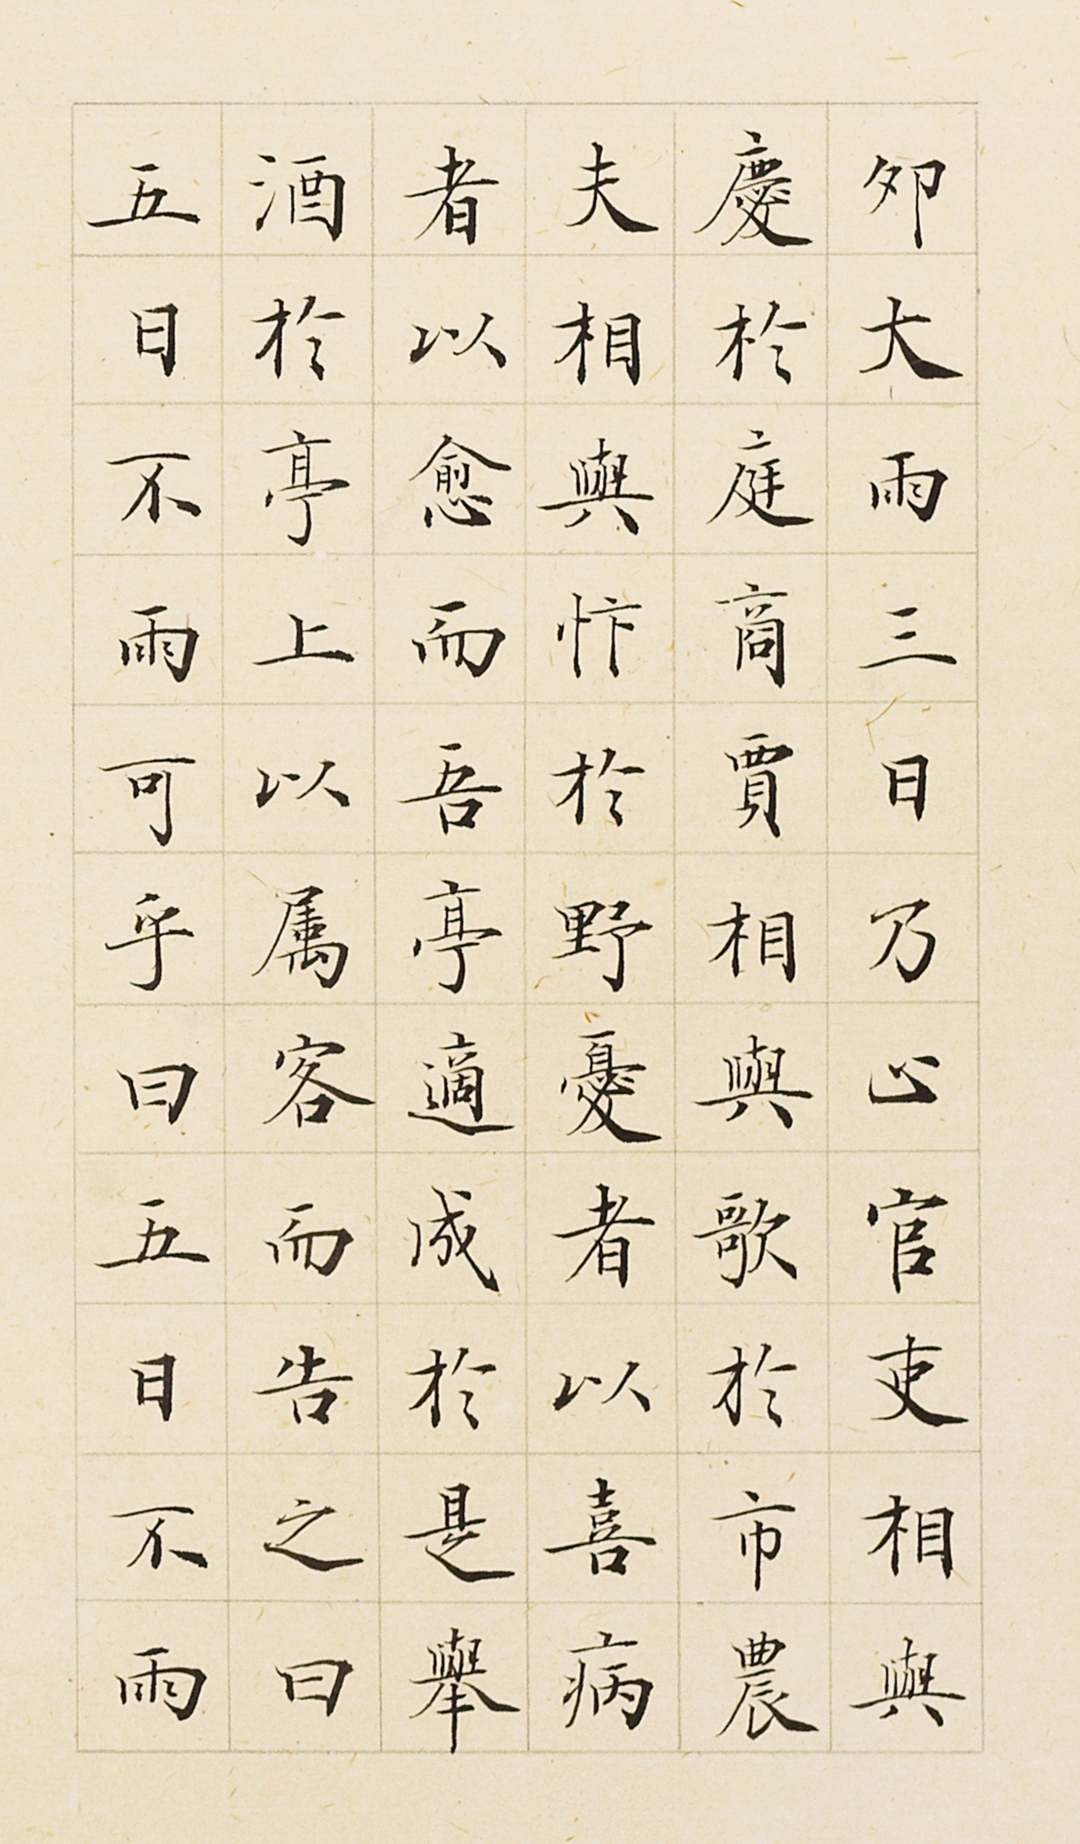 卯大雨三日乃止官吏相與
慶於庭商賈相與歌於市農
夫相與忭於野憂者以喜病
者以愈而吾亭適成於是舉
酒於亭上以属客而告之曰
五日不雨可乎曰五日不雨